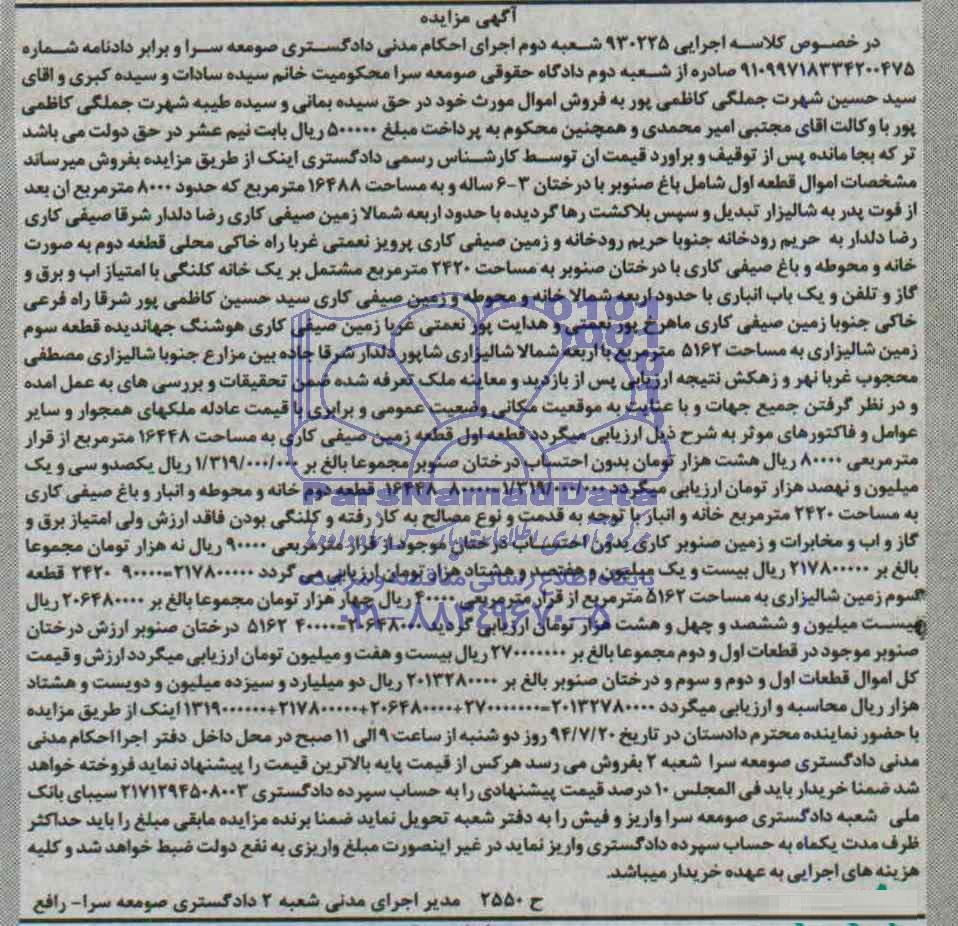 آگهی مزایده
در خصوص کلاسه اجرایی ۹۳۰۲۲۵ شعبه دوم اجرای احکام مدنی دادگستری صومعه سرا و برابر دادنامه شماره
۹۱۰۹۹۷۱۸۳۳۴۲۰۰۴۷۵ صادره از شعبه دوم دادگاه حقوقی صومعه سرا محکومیت خانم سیده سادات و سیده کبری و اقای
سید حسین شهرت جملگی کاظمی پور به فروش اموال مورث خود در حق سیده یمانی و سیده طیبه شهرت جملگی کاظمی
پور با وکالت اقای مجتبی امیر محمدی و همچنین محکوم به پرداخت مبلغ ۵۰۰۰۰۰ ریال بابت نیم عشر در حق دولت می باشد
تر که بجا مانده پس از توقیف و براورد قیمت ان توسط کارشناس رسمی دادگستری اینک از طریق مزایده بفروش میرساند
مشخصات اموال قطعه اول شامل باغ صنوبر با درختان ۳-۶ ساله و به مساحت ۱۶۴۸۸ مترمربع که حدود ۸۰۰۰ مترمربع ان بعد
از فوت پدر به شالیزار تبدیل و سپس بلاکشت رها گردیده با حدود اربعه شمالا زمین صیفی کاری رضا دلدار شرقا صیفی کاری
رضا دلدار به حریم رودخانه جنوبا حریم رودخانه و زمین صیفی کاری پرویز نعمتی غربا راه خاکی محلی قطعه دوم به صورت
خانه و محوطه و باغ صیفی کاری با درختان صنوبر به مساحت ۲۴۲۰ مترمربع مشتمل بر یک خانه کلنگی با امتیاز اب و برق و
گاز و تلفن و یک باب انباری با حدود اربعه شمالا خانه و محوطه و زمین صیفی کاری سید حسین کاظمی پور شرقا راه فرعی
خاکی جنوبا زمین صیفی کاری ماهرخ پور نعمتی و هدایت پور نعمتی غربا زمین صیفی کاری هوشنگ جهاندیده قطعه سوم
زمین شالیزاری به مساحت ۵۱۶۲ مترمربع با اربعه شمالا شالیزاری شاپور دلدار شرقا جاده بین مزارع جنوبا شالیزاری مصطفی
محجوب غربا نهر و زهکش نتیجه ارزیابی پس از بازدید و معاینه ملک تعرفه شده ضمن تحقیقات و بررسی های به عمل امده
و در نظر گرفتن جمیع جهات و با عنایت به موقعیت مکانی وضعیت عمومی و برابری با قیمت عادله ملکهای همجوار و سایر
عوامل و فاکتورهای موثر به شرح ذیل ارزیابی میگردد قطعه اول قطعه زمین صیفی کاری به مساحت ۱۶۴۴۸ مترمربع از قرار
مترمربعی ۸۰۰۰۰ ریال هشت هزار تومان بدون احتساب درختان صنوبر مجموعا بالغ بر ۱/۳۱۹/۰۰۰/۰۰۰ ریال یکصدو سی و یک
میلیون و نهصد هزار تومان ارزیابی میگردد ۱/۳۱۹/۰۰۰/۰۰۰ ۸۰۰۰۰ ۱۶۴۴۸ قطعه دوم خانه و محوطه و انبار و باغ صیفی کاری
به مساحت ۲۴۲۰ مترمربع خانه و انبار با توجه به قدمت و نوع مصالح به کار رفته و کلنگی بودن فاقد ارزش ولی امتیاز برق و
گاز و اب و مخابرات و زمین صنوبر کاری بدون احتساب درختان موجود از قرار مترمربعی ۹۰۰۰۰ ریال نه هزار تومان مجموعا
بالغ بر ۲۱۷۸۰۰۰۰۰ ریال بیست و یک میلیون و هفتصد و هشتاد هزار تومان ارزیابی می گردد ۲۱۷۸۰۰۰۰۰=۹۰۰۰۰ ۲۴۲۰ قطعه
سوم زمین شالیزاری به مساحت ۵۱۶۲ مترمربع از قرار مترمربعی ۴۰۰۰۰ ریال چهار هزار تومان مجموعا بالغ بر ۲۰۶۴۸۰۰۰۰ ریال
بیست میلیون و ششصد و چهل و هشت هزار تومان ارزیابی گردید ۲۰۶۴۸۰۰۰۰=۴۰۰۰۰ ۵۱۶۲ درختان صنوبر ارزش درختان
صنوبر موجود در قطعات اول و دوم مجموعا بالغ بر ۲۷۰۰۰۰۰۰۰ ریال بیست و هفت و میلیون تومان ارزیابی میگردد ارزش و قیمت
کل اموال قطعات اول و دوم و سوم و درختان صنوبر بالغ بر ۲۰۱۳۲۸۰۰۰۰ ریال دو میلیارد و سیزده میلیون و دویست و هشتاد
هزار ریال محاسبه و ارزیابی میگردد ۲۰۱۳۲۷۸۰۰۰۰=۲۷۰۰۰۰۰۰۰+۲۰۶۴۸۰۰۰۰+۲۱۷۸۰۰۰۰۰+۱۳۱۹۰۰۰۰۰۰ اینک از طریق مزایده
با حضور نماینده محترم دادستان در تاریخ ۹۴/۷/۲۰ روز دو شنبه از ساعت ۹ الی ۱۱ صبح در محل داخل دفتر اجرا احکام مدنی
مدنی دادگستری صومعه سرا شعبه ۲ بفروش می رسد هرکس از قیمت پایه بالاترین قیمت را پیشنهاد نماید فروخته خواهد
شد ضمنا خریدار باید فی المجلس ۱۰ درصد قیمت پیشنهادی را به حساب سپرده دادگستری ۲۱۷۱۲۹۴۵۰۸۰۰۳ سیبای بانک
ملی شعبه دادگستری صومعه سرا واریز و فیش را به دفتر شعبه تحویل نماید ضمنا برنده مزایده مابقی مبلغ را باید حداکثر
ظرف مدت یکماه به حساب سپرده دادگستری واریز نماید در غیر اینصورت مبلغ واریزی به نفع دولت ضبط خواهد شد و کلیه
هزینه های اجرایی به عهده خریدار میباشد.
ح ۲۵۵۰ مدیر اجرای مدنی شعبه ۲ دادگستری صومعه سرا- رافع
ParsNamadData
پایگاه اطلاع رسانی مناقصه و مزایده
۰۲۱-۸۸۳۴۹۶۷۰-۵